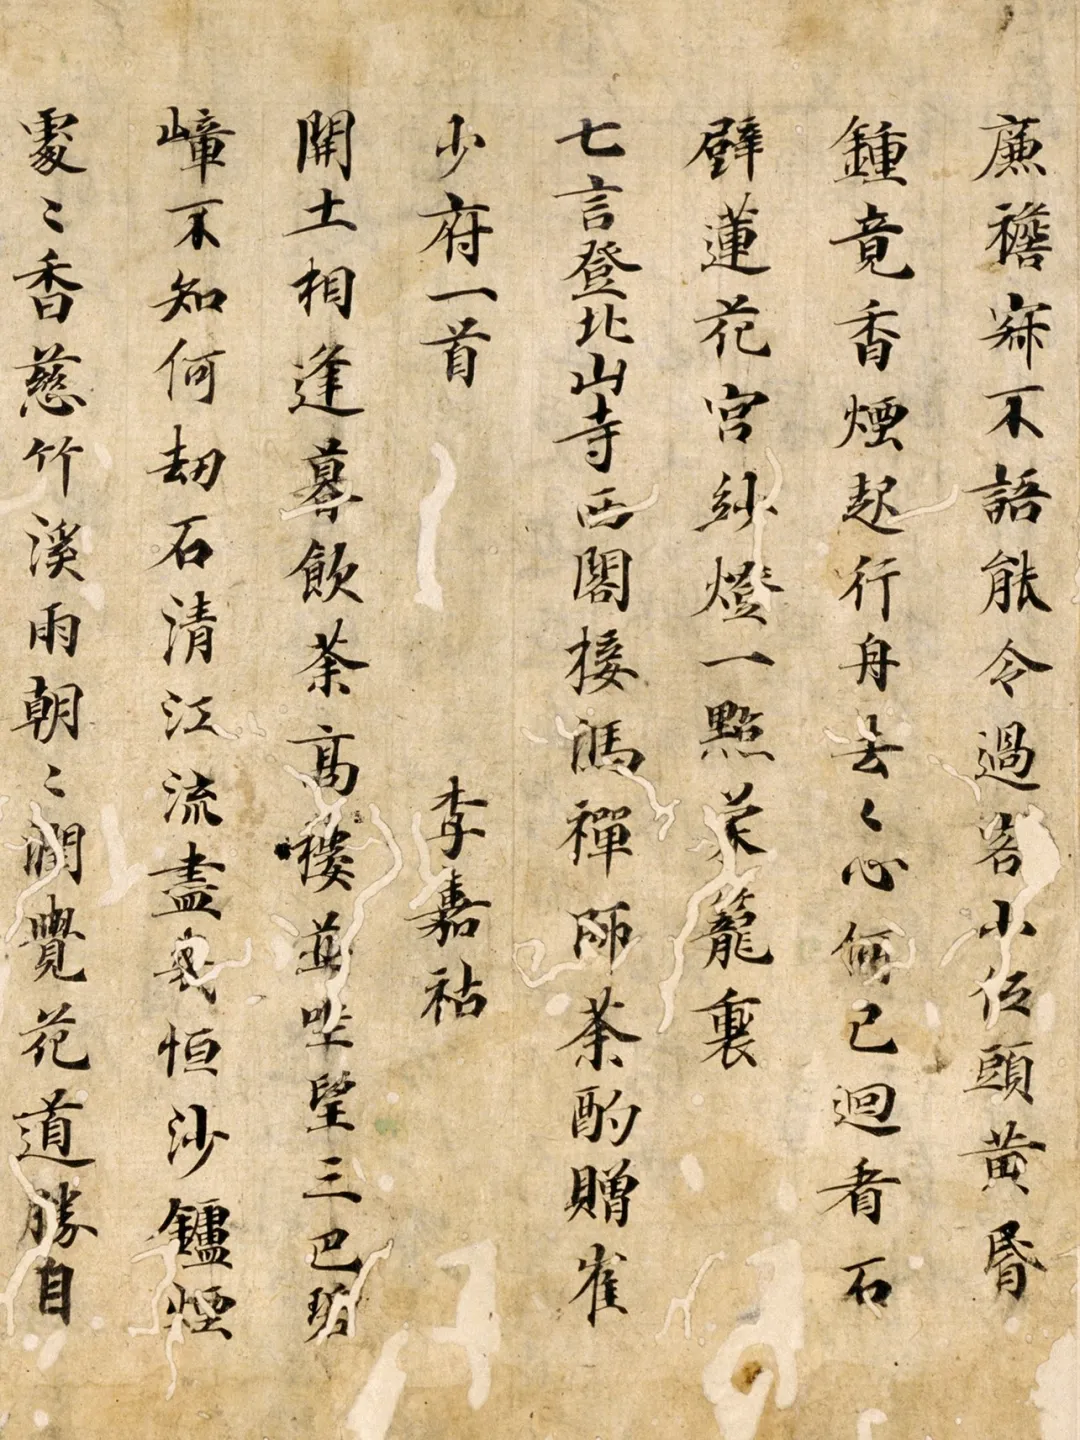 廉襜寂不語能令過客小低頭黃昏
鍾竟香煙起行舟去〻心何已迴看石
壁蓮花宮紗燈一點茱籠裏
七言登北山寺西閣接馮禪師茶酌贈崔
少府一首 李嘉祐
開士相逢暮飲茶高樓並坐望三巴
嶂不知何劫石清江流盡幾恒沙鑪煙
處〻香慈竹溪雨朝〻潤覺花道勝自